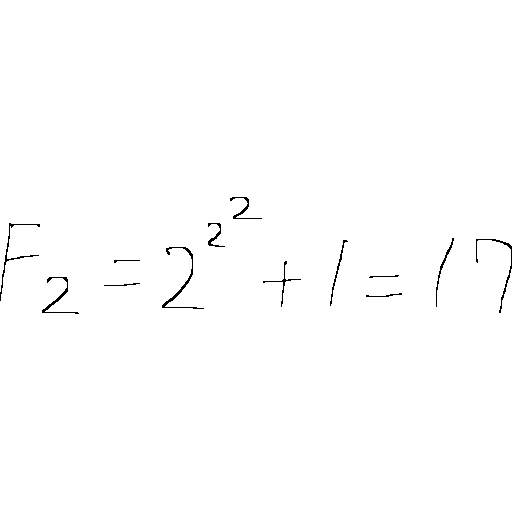 F_2 = 2^{2^2} + 1 = 17